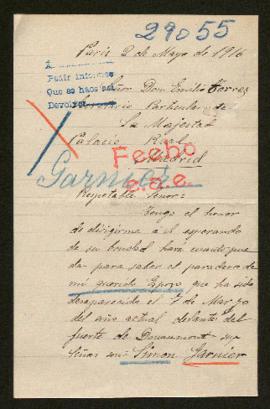 29055
Paris 2 de Mayo de 1916
A
Pedir informes
Que se haos sai
Devolver
Señor Don Emilio Torres
Secretario Particular de
Su Majestad
Palacio Real
Madrid
Fecho
e.a.e.
Garnier
Respetable Señor:
Tengo el honor
de dirigirme a el agrando
de su bondad hara cuanto pue
da para saber el paradero de
mi querido Esposo que ha sido
desaparecido el 7 de Marzo
del año actual delante del
fuerte de Douaumont sus
señas son: Simon Garnier